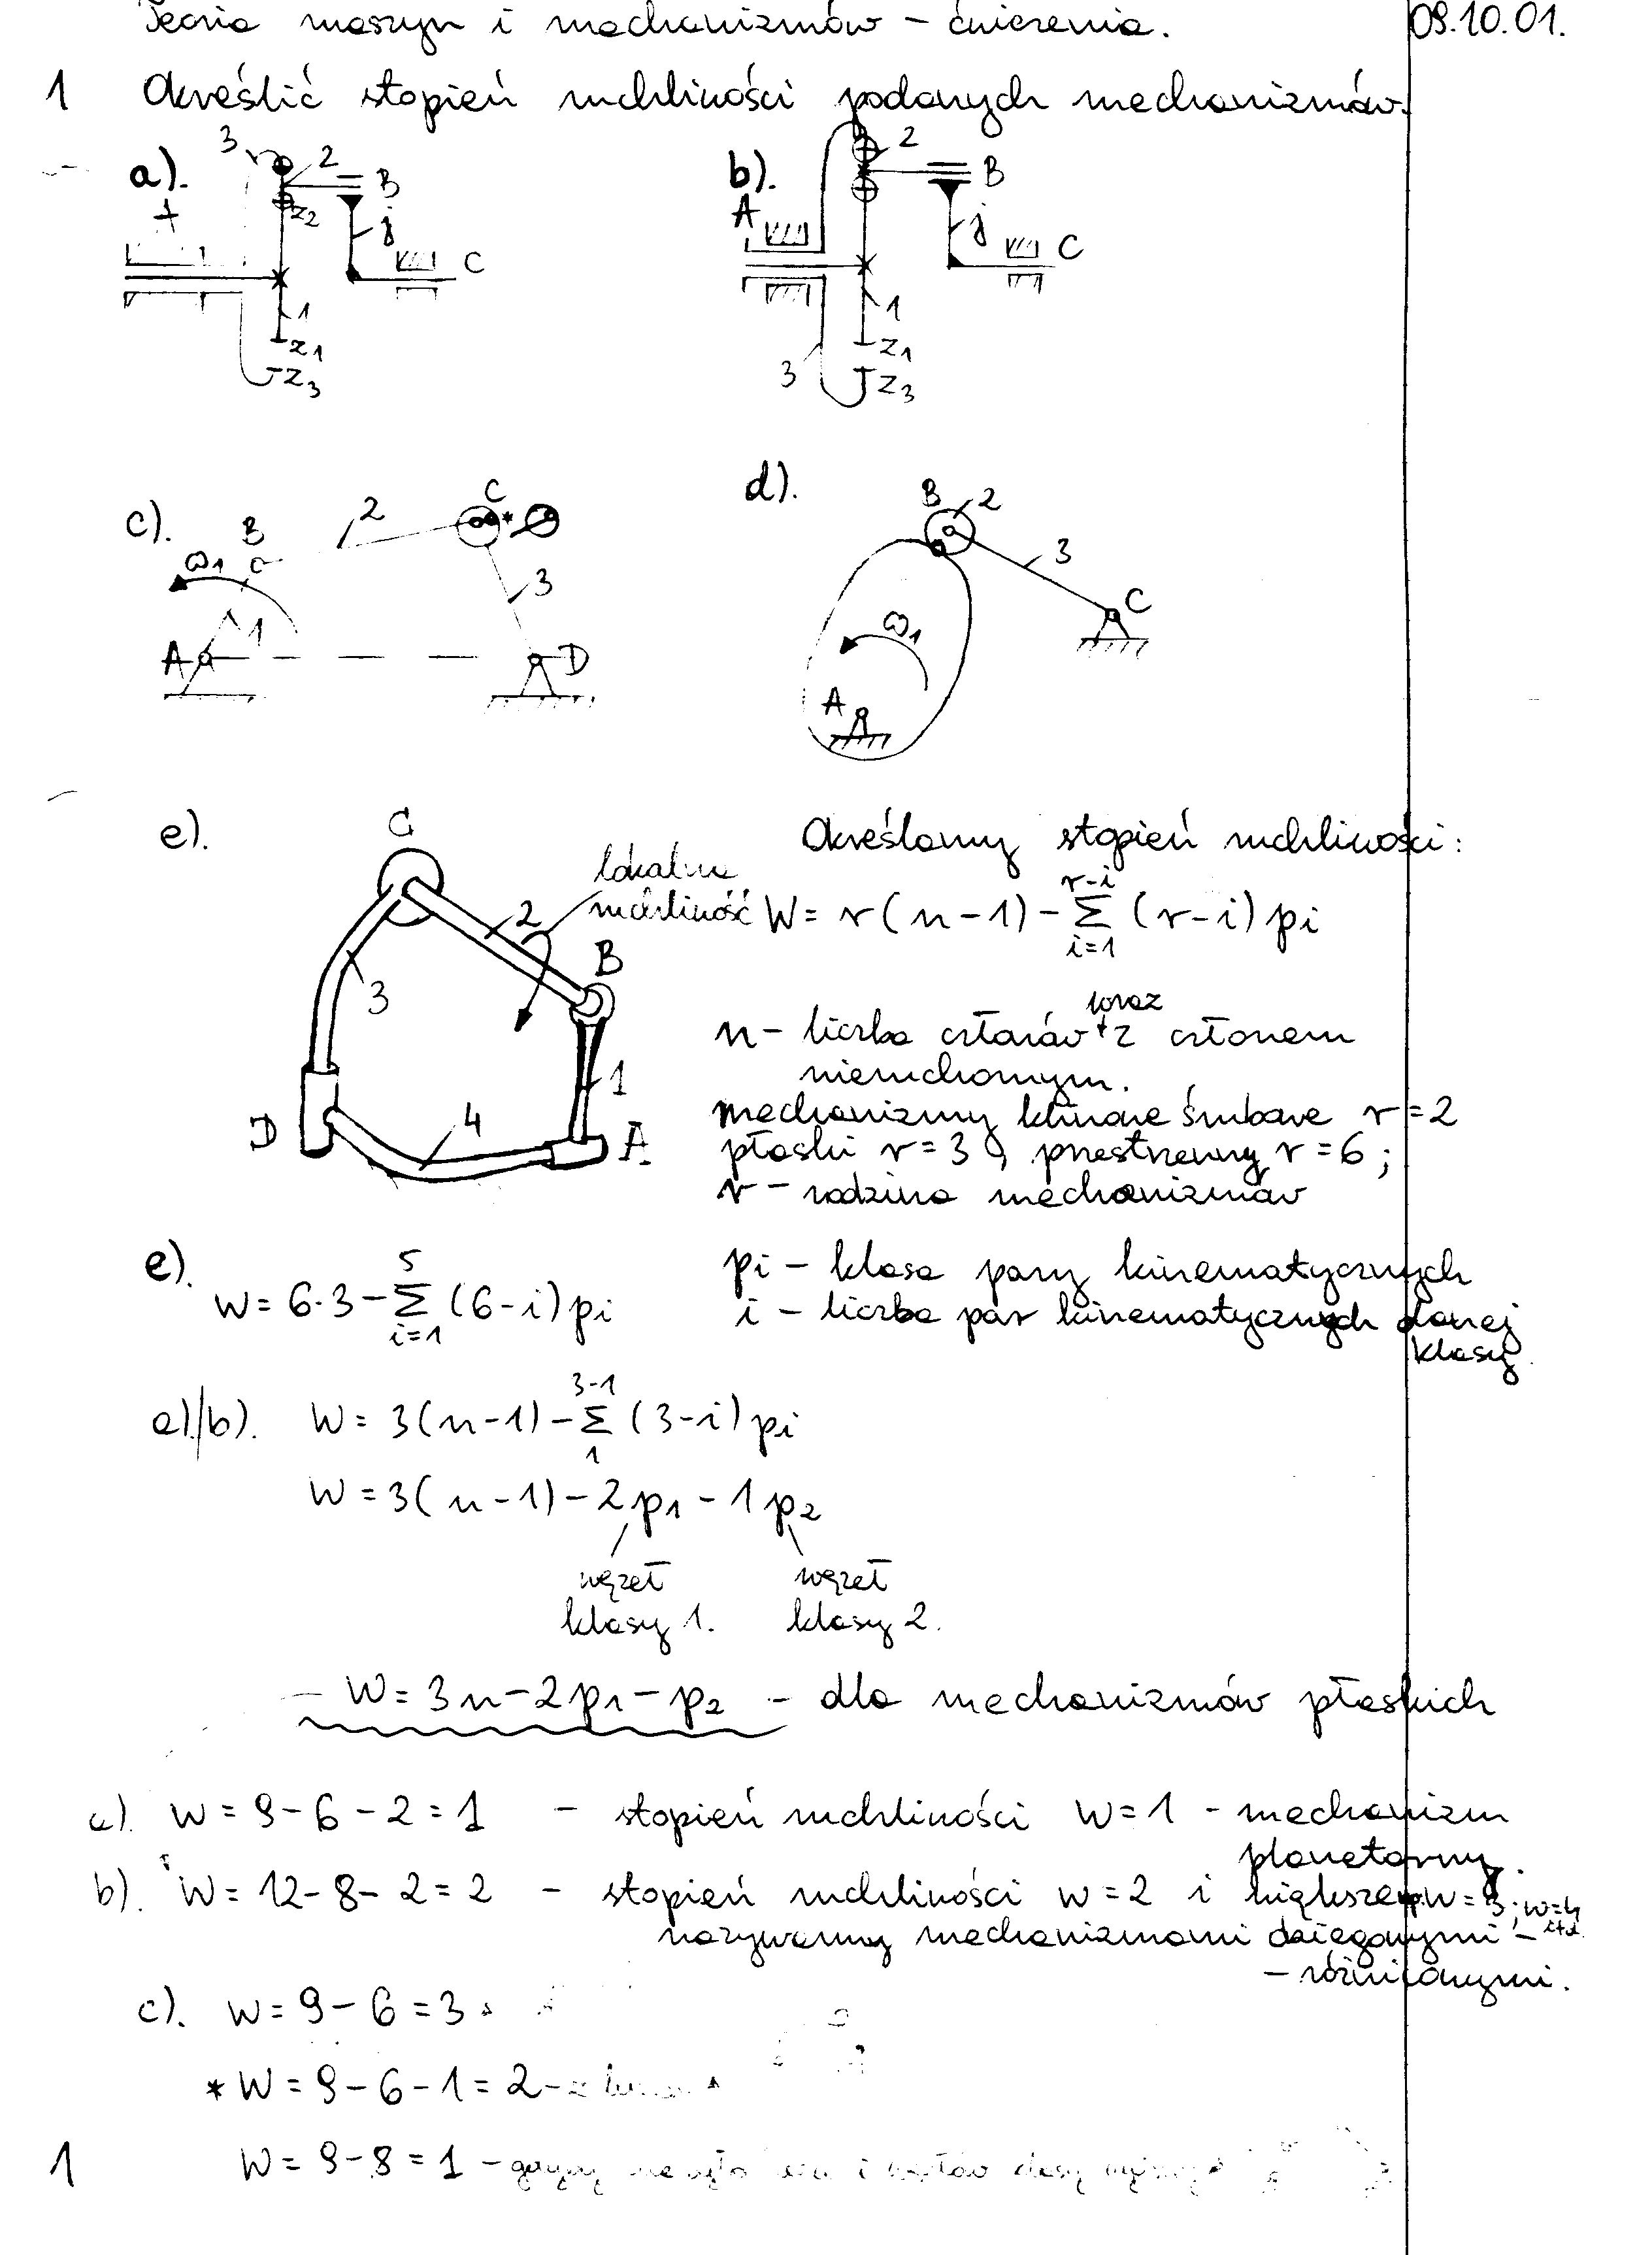 Teoria maszyn i mechanizmów – ćwiczenia. 09.10.01.
1 Określić stopień ruchliwości podanych mechanizmów.
a). 3 2 B
A z2 j C
1
z1
z3
b). 2 B
A j C
1
z1
3 z3
c). B 2 C *
ω1 3
A 1 D
d). B 2
3
C
ω1
A
e). C
lokalna
ruchliwość
2
B
3
1
D 4 A
Określamy stopień ruchliwości:
W = r(n-1) - Σ (r-i) pi
r-i
i=1
oraz
n – liczba członów + z członem
nieruchomym.
mechanizmy klinowe śrubowe r=2
płaski r=3, przestrzenny r=6;
r – rodzina mechanizmów
pi – klasa pary kinematycznych
i – liczba par kinematycznych danej
klasy.
e). W = 6·3 - Σ (6-i) pi
5
i=1
a)/b). W = 3(n-1) - Σ (3-i) pi
3-1
1
W = 3(n-1) - 2p1 - 1p2
węzeł węzeł
klasy 1. klasy 2.
– W = 3n - 2p1 - p2 – dla mechanizmów płaskich
a). W = 9 - 6 - 2 = 1 – stopień ruchliwości W=1 - mechanizm
planetarny.
b). W = 12 - 8 - 2 = 2 – stopień ruchliwości w=2 i większe W=3; w=4
itd.
nazywamy mechanizmami –
– różnicowymi.
c). W = 9 - 6 = 3
* W = 9 - 6 - 1 = 2 -
1 W = 9 - 8 = 1 –